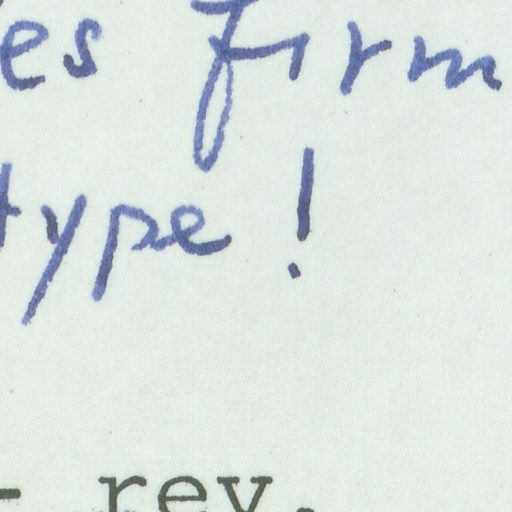 es firm
type!
- rev.